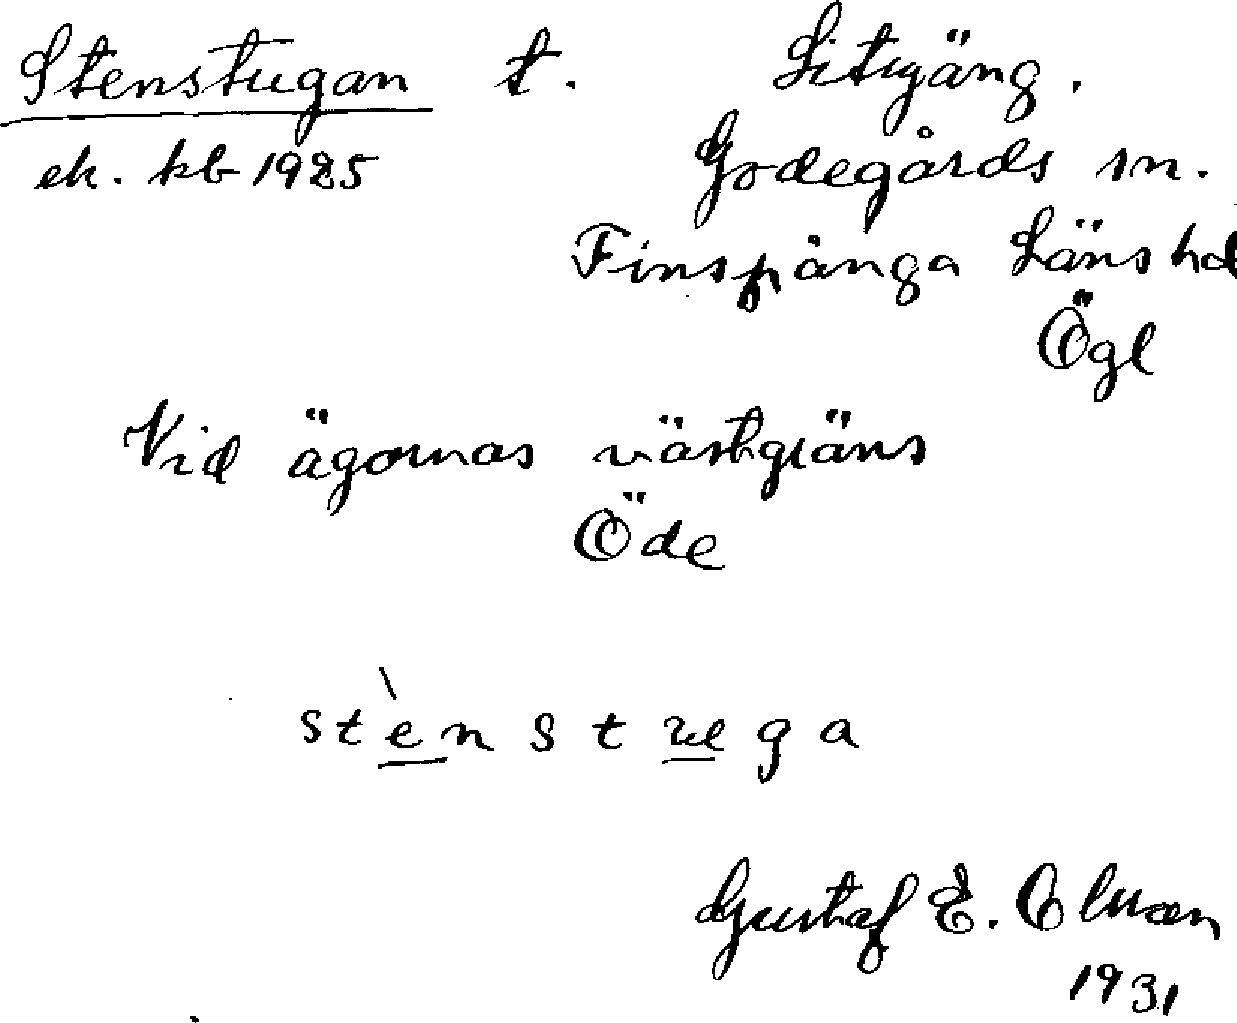 Stenstugan t. Sitigäng.
ek. kb 1925 Godegårds sn.
Finspånga Läns hd
Ögl
Vid ägornas västgräns
Öde
stènstuga
Gustaf E. Olsson
1931